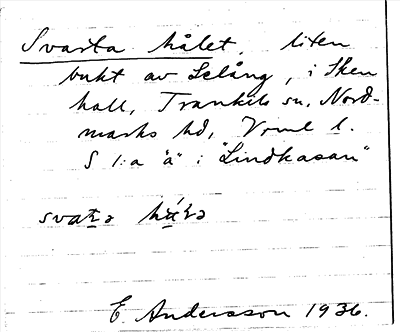 Svarta hålet, liten
bukt av Lelång, i Sken
hall, Trankils sn, Nord-
marks hd, Vrml l.
S 1:a "ä" i "Lindkasan"
E Andersson 1936.